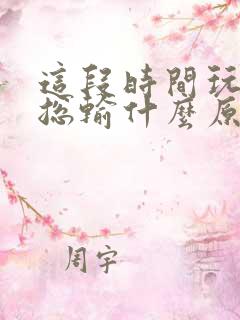 這段時間玩
總輸什麼原
周宇